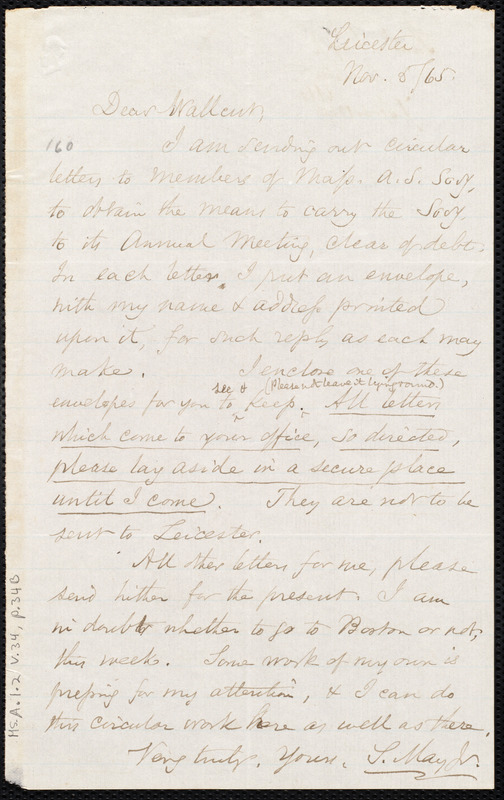 Leicester
Nov. 5/65.
Dear Wallcut,
160 I am sending out circular
letters to members of Mass. A. S. Socy,
to obtain the means to carry the Socy,
to its Annual Meeting, clear of debt.
In each letter, I put an envelope,
with my name & address printed
upon it, for such reply as each may
make. I enclose one of these
see & (Please not leave it lying round.)
envelopes for you to keep. All letters
which come to your office, so directed,
please lay aside in a secure place
until I come. They are not to be
sent to Leicester.
All other letters for me, please
send hither for the present. I am
in doubt whether to go to Boston or not,
this week. Some work of my own is
pressing for my attention, & I can do
this circular work here as well as there.
Very truly, Yours, S. May Jr.
Ms.A.1.2 v.34, p.34B